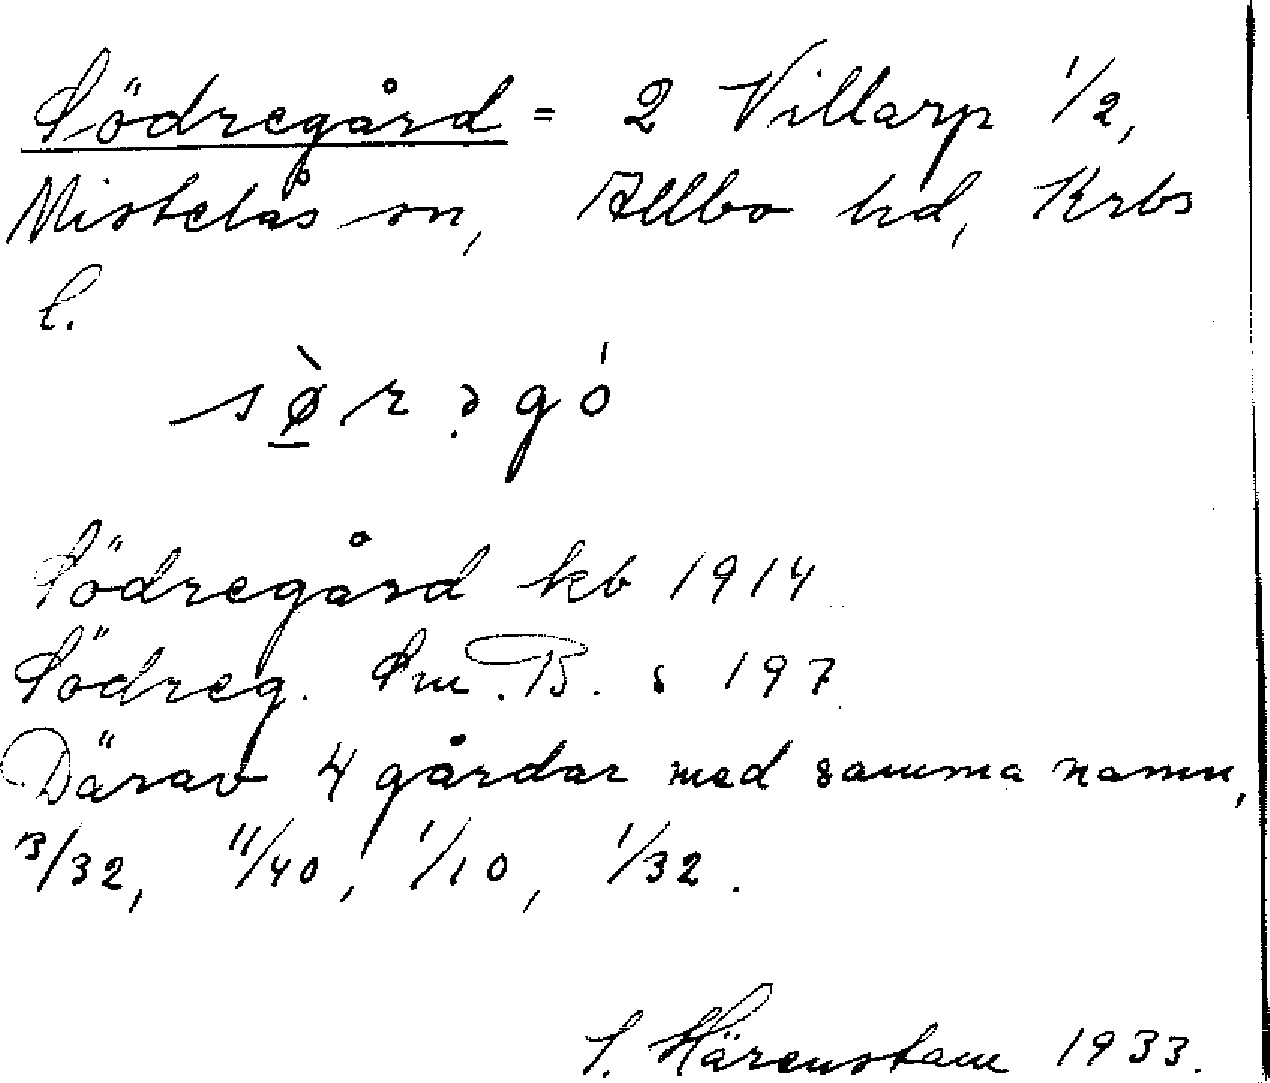 Södregård = 2 Villarp 1/2,
Mistelås sn, Allbo hd, Krbs
l.
sø̱̀r ə̣gó
Södregård kb 1914
Södreg. Sm. B. s 197
Därav 4 gårdar med samma namn,
3/32, 11/40, 1/10, 1/32.
S. Härenstam 1933.